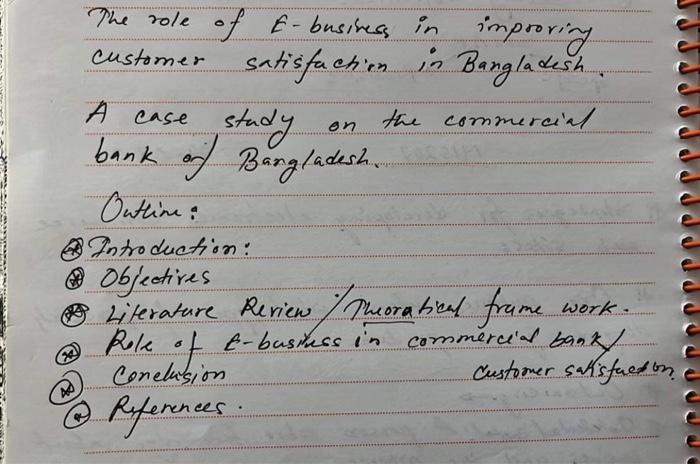 The role of E-business in improving
customer satisfaction in Bangladesh.
A case study on the commercial
bank of Bangladesh.
Outline:
Introduction:
Objectives
Literature Review / Theoratical frame work.
Role of E-business in commercial bank /
Conclusion customer satisfaction.
References.